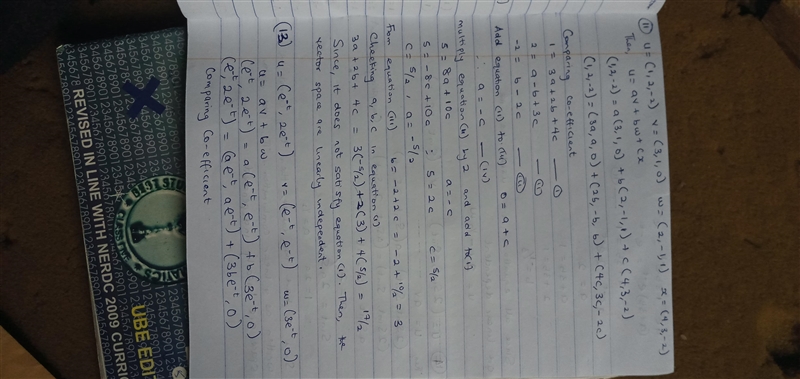 (11) u = (1, 2, -2) v = (3, 1, 0) w = (2, -1, 1) x = (4, 3, -2)
Then, u = av + bw + cx
(1, 2, -2) = a(3, 1, 0) + b(2, -1, 1) + c(4, 3, -2)
(1, 2, -2) = (3a, a, 0) + (2b, -b, b) + (4c, 3c, -2c)
Comparing co-efficient
1 = 3a + 2b + 4c — (i)
2 = a - b + 3c — (ii)
-2 = b - 2c — (iii)
Add equation (ii) to (iii) 0 = a + c
a = -c — (iv)
multiply equation (ii) by 2 and add to (i)
5 = 8a + 10c a = -c
5 = -8c + 10c : 5 = 2c c = 5/2
c = 5/2, a = -5/2
From equation (iii) b = -2 + 2c = -2 + 10/2 = 3
Checking a, b, c in equation (i)
3a + 2b + 4c = 3(-5/2) + 2(3) + 4(5/2) = 17/2
Since, it does not satisfy equation (i). Then, the
vector space are linearly independent.
(13) u = (e^-t, 2e^-t) v = (e^-t, e^-t) w = (3e^-t, 0)
u = av + bw
(e^-t, 2e^-t) = a(e^-t, e^-t) + b(3e^-t, 0)
(e^-t, 2e^-t) = (ae^-t, ae^-t) + (3be^-t, 0)
Comparing co-efficient
REVISED IN LINE WITH NERDC 2009 CURRIC
UBE EDIT
BEST STU